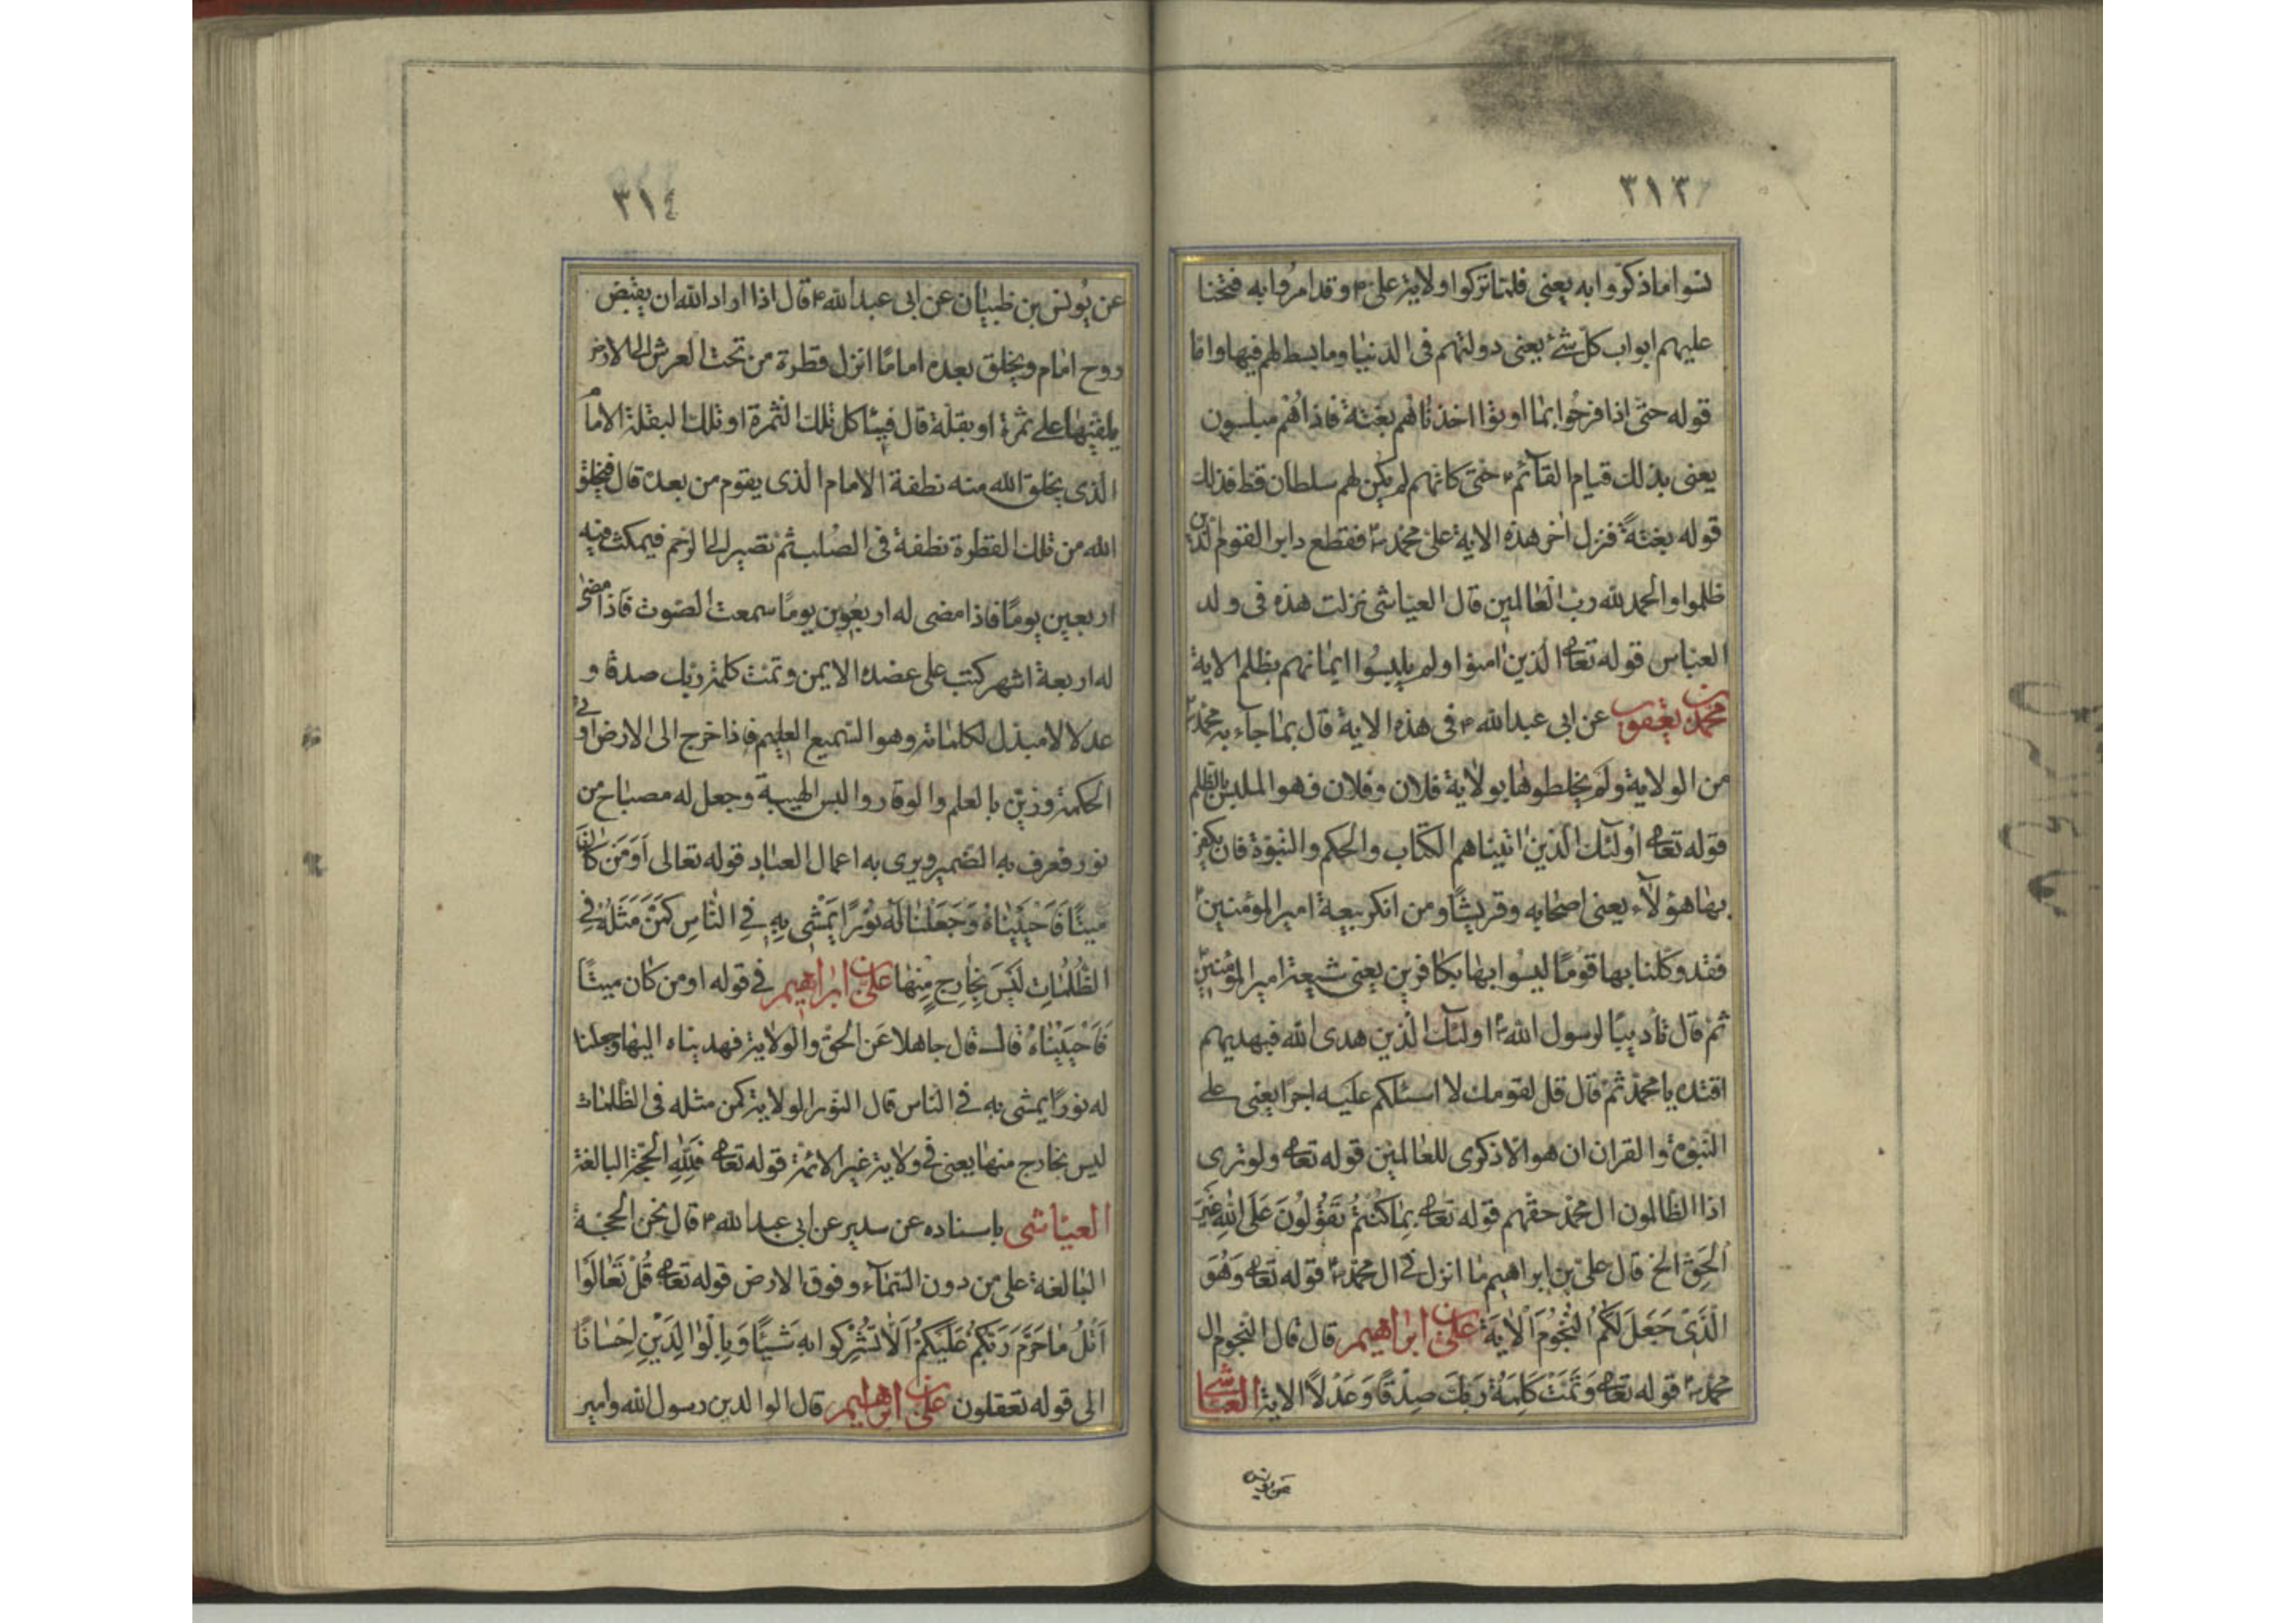 ٣١٣
نسوا ما ذكروا به يعنى فلما تركوا ولاية على ع وقد امروا به فتحنا
عليهم ابواب كل شئ يعنى دولتهم فى الدنيا وما بسط لهم فيها واما
قوله حتى اذا فرحوا بما اوتوا اخذناهم بغتة فاذا هم مبلسون
يعنى بذلك قيام القآئم ع حتى كانهم لم يكن لهم سلطان قط فذلك
قوله بغتةً فنزل اخر هذه الاية على محمد ص فقطع دابر القوم الذين
ظلموا والحمد لله رب العالمين قال العياشى نزلت هذه فى ولد
العباس قوله تعا الذين امنوا ولم يلبسوا ايمانهم بظلم الاية
محمد بن يعقوب عن ابى عبد الله ع فى هذه الاية قال بما جاء به محمد ص
من الولاية ولم يخلطوها بولاية فلان وفلان فهو الملبس بالظلم
قوله تعا أولئك الذين اتيناهم الكتاب والحكم والنبوة فان يكفر
بها هؤلآء يعنى اصحابه وقريشًا ومن انكر بيعة امير المؤمنين ع
فقد وكلنا بها قومًا ليسوا بها بكافرين يعنى شيعة امير المؤمنين ع
ثم قال تأديبًا لرسول الله ص اولئك الذين هدى الله فبهديهم
اقتده يا محمد ثم قال قل لقومك لا اسئلكم عليه اجرا يعنى على
النبوة والقران ان هو الا ذكرى للعالمين قوله تعا ولو ترى
اذا الظالمون ال محمد حقهم قوله تعا بِمٰا كُنْتُمْ تَقُولُونَ عَلَى اللهِ غَيْرَ
الْحَقِّ الخ قال على بن ابراهيم ما انزل فى ال محمد ص قوله تعا وَهُوَ
الَّذى جَعَلَ لَكُمُ النُّجُومَ الْاٰيَة على بن ابراهيم قال قال النجوم ال
محمد ص قوله تعا وَتَمَّتْ كَلِمَةُ رَبِّكَ صِدْقًا وَعَدْلاً الاية العياشى
عن يونس
٣١٤
عن يونس بن ظبيان عن ابى عبد الله ع قال اذا اراد الله ان يقبض
روح امام ويخلق بعده امامًا انزل قطرة من تحت العرش الى الارض
يلقيها على ثمرة او بقلة قال فياكل تلك الثمرة او تلك البقلة الامام
الذى يخلق الله منه نطفة الامام الذى يقوم من بعده قال فيخلق
الله من تلك القطرة نطفة فى الصلب ثم تصير الى الرحم فيمكث فيه
اربعين يومًا فاذا مضى له اربعون يومًا سمعت الصوت فاذا مضى
له اربعة اشهر كتب على عضده الايمن وتمت كلمة ربك صدقا و
عدلا لا مبدل لكلماته وهو السميع العليم فاذا خرج الى الارض اوتى
الحكمة وزين بالعلم والوقار والبس الهيبة وجعل له مصباح من
نور فعرف به الضمير ويرى به اعمال العباد قوله تعالى أَوَمَنْ كٰانَ
مَيْتًا فَاَحْيَيْنٰاهُ وَجَعَلْنٰا لَهُ نُورًا يَمْشى بِهِ فِى النّٰاسِ كَمَنْ مَثَلُهُ فِى
الظُّلُمٰاتِ لَيْسَ بِخٰارِجٍ مِنْهٰا على بن ابراهيم فى قوله اومن كان ميتًا
فَاَحْيَيْنٰاهُ قال قال جاهلا عن الحق والولاية فهديناه اليها وجعلنا
له نورًا يمشى به فى الناس قال النور الولاية كمن مثله فى الظلمات
ليس بخارج منها يعنى فى ولاية غير الائمة قوله تعا فَلِلّٰهِ الحجّة البالغة
العياشى باسناده عن سدير عن ابى عبد الله ع قال نحن الحجة
البالغة على من دون السمآء وفوق الارض قوله تعا قُلْ تَعٰالَوْا
اَتْلُ مٰا حَرَّمَ رَبُّكُمْ عَلَيْكُمْ اَلّٰا تُشْرِكُوا بِهِ شَيْئًا وَبِالْوٰالِدَيْنِ اِحْسٰانًا
الى قوله تعقلون على بن ابراهيم قال الوالدين رسول الله وامير